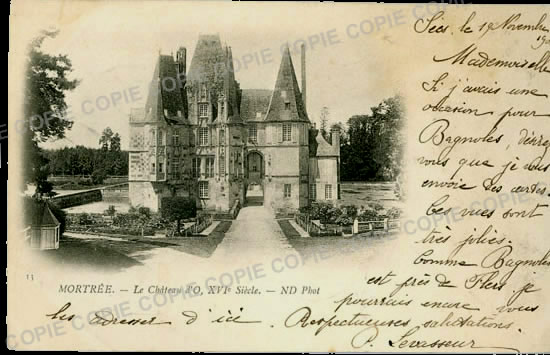 Séès, le 19 Novembre
190
Mademoiselle
Si j'avais une
occasion pour
Bagnoles, désirez
vous que je vous
envoie des cartes
les vues sont
très jolies.
Comme Bagnoles
est près de Flers, je
pourrais encore vous
les adresser d'ici.
Respectueuses salutations.
P. Levasseur
13
MORTRÉE. — Le Château d'O, XVIe Siècle. — ND Phot
COPIE COPIE COPIE COPIE